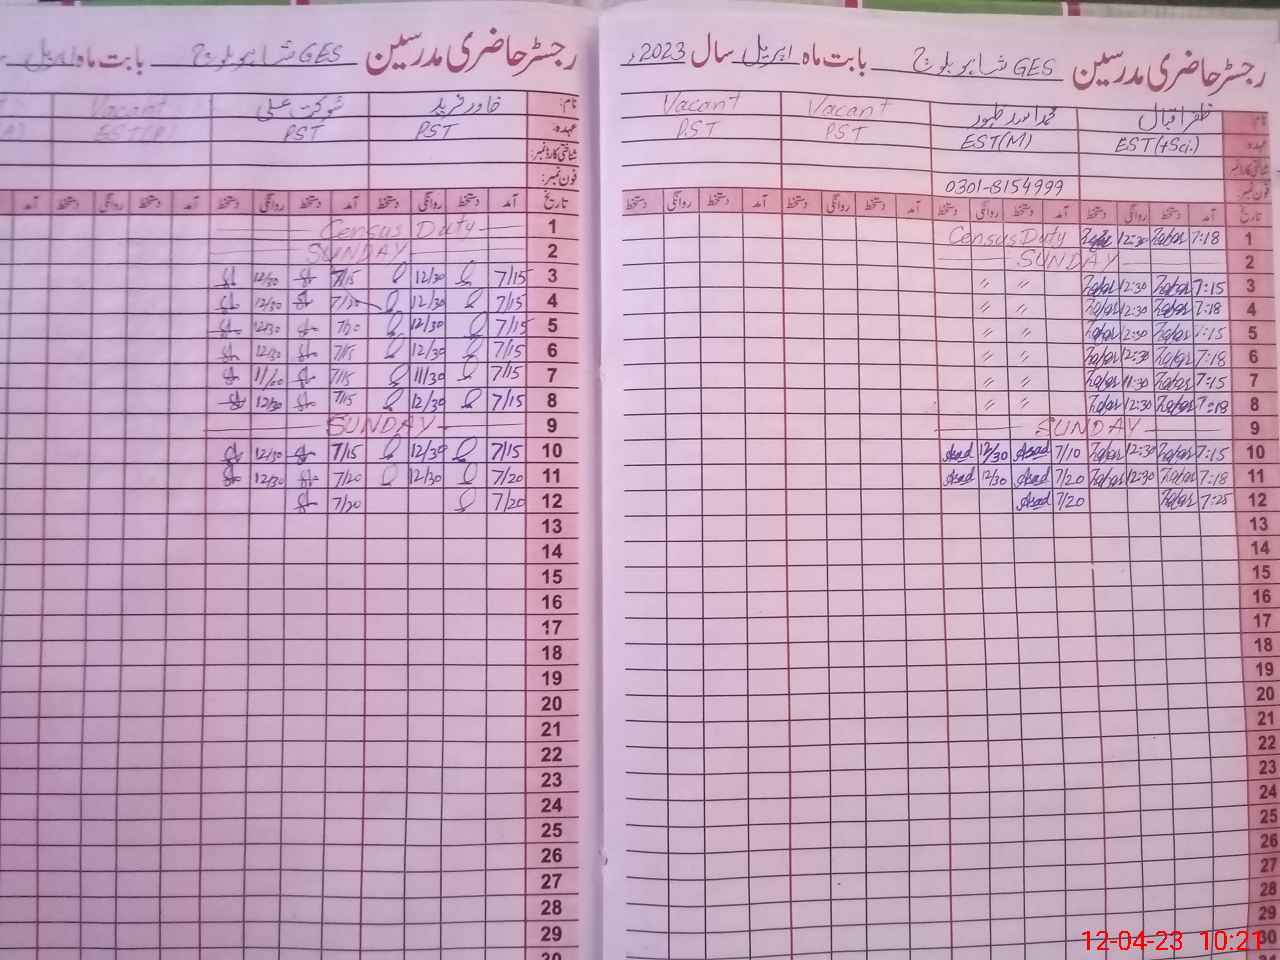 رجسٹر حاضری مدرسین GES شاہو بلوچ بابت ماہ اپریل سال 2023ء
نام: ظفر اقبال محمد اسد ظہور Vacant Vacant
عہدہ EST(+Sci.) EST(M) PST PST
شناختی کارڈ نمبر:
فون نمبر: 0301-8154999
تاریخ آمد دستخط روانگی دستخط آمد دستخط روانگی دستخط آمد دستخط روانگی دستخط آمد دستخط روانگی دستخط
1 7:18 Zafar 12:30 Zafar Census Duty
2 SUNDAY
3 7:15 Zafar 12:30 Zafar " "
4 7:18 Zafar 12:30 Zafar " "
5 7:15 Zafar 12:30 Zafar " "
6 7:18 Zafar 12:30 Zafar " "
7 7:15 Zafar 11:30 Zafar " "
8 7:18 Zafar 12:30 Zafar " "
9 SUNDAY
10 7:15 Zafar 12:30 Zafar 7/10 Asad 12/30 Asad
11 7:18 Zafar 12:30 Zafar 7/20 Asad 12/30 Asad
12 7:25 Zafar 7/20 Asad
13
14
15
16
17
18
19
20
21
22
23
24
25
26
27
28
29
30
رجسٹر حاضری مدرسین GES شاہو بلوچ بابت ماہ اپریل
نام: خاور فرید شوکت علی Vacant
عہدہ: PST PST
شناختی کارڈ نمبر:
فون نمبر:
تاریخ آمد دستخط روانگی دستخط آمد دستخط روانگی دستخط آمد دستخط روانگی دستخط آمد
1 Census Duty
2 SUNDAY
3 7/15 12/30 7/15 12/30
4 7/15 12/30 7/20 12/30
5 7/15 12/30 7/20 12/30
6 7/15 12/30 7/15 12/30
7 7/15 11/30 7/15
8 7/15 12/30 7/15 12/30
9 SUNDAY
10 7/15 12/30 7/15 12/30
11 7/20 12/30 7/20 12/30
12 7/20 7/20
13
14
15
16
17
18
19
20
21
22
23
24
25
26
27
28
29
30
12-04-23 10:21